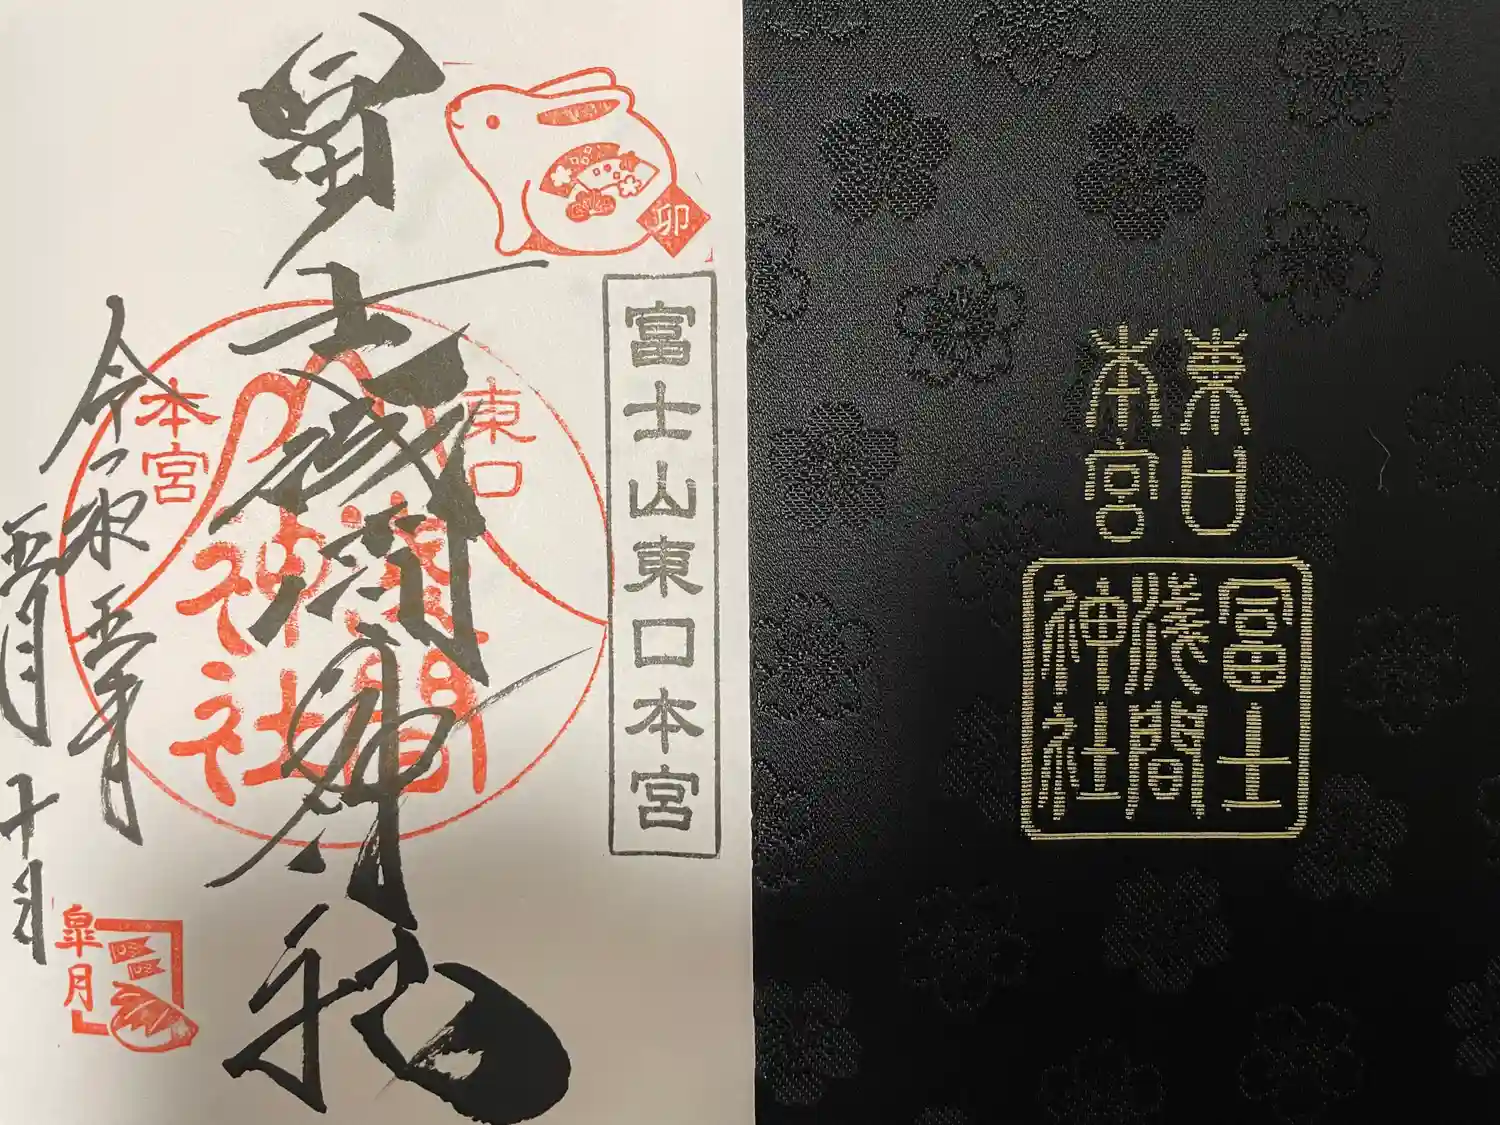 卯
富士山東口本宮
東口
本宮
浅間
神社
富士浅間神社
令和五年
五月十日
皐月
東口
本宮
富士
浅間
神社